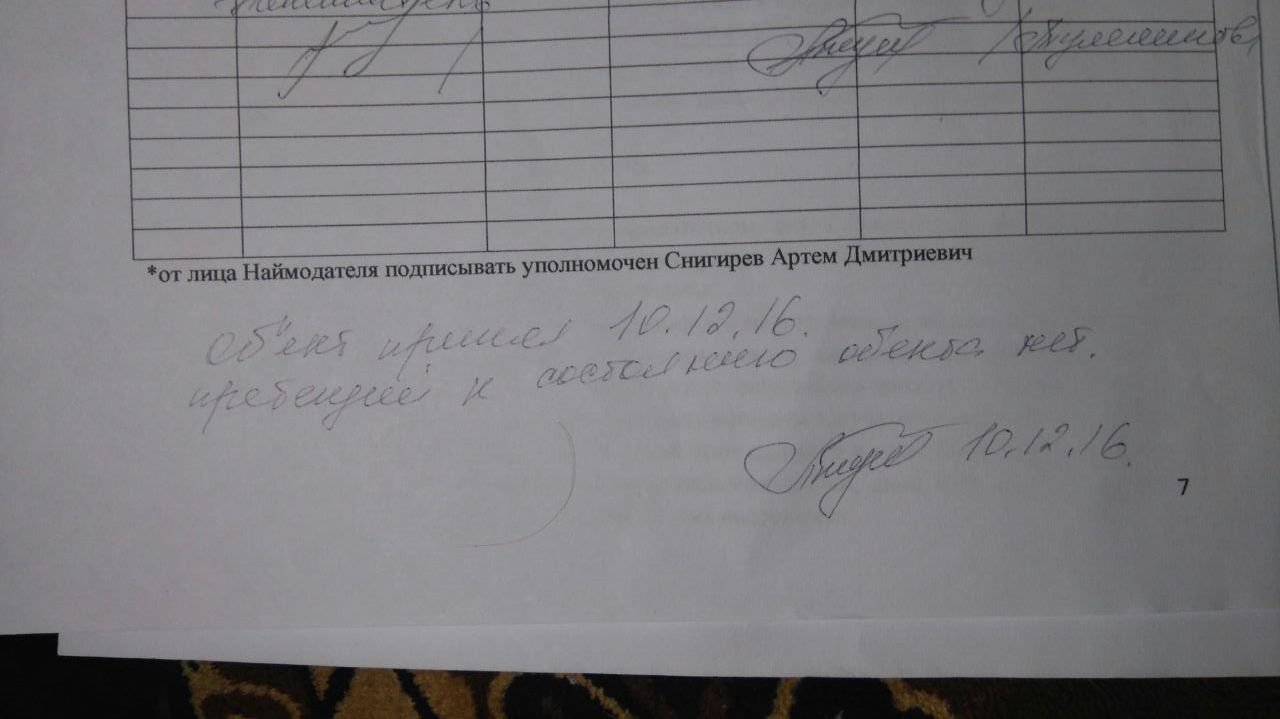 *от лица Наймодателя подписывать уполномочен Снигирев Артем Дмитриевич
Об'ект принял 10.12.16.
претензий к состоянию обекта нет.
10.12.16.
7